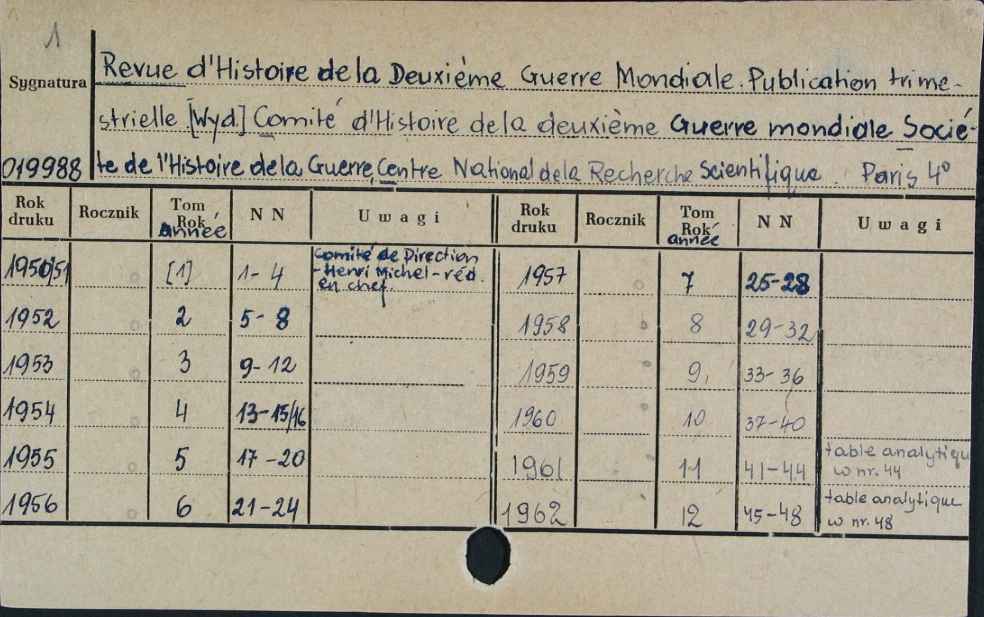 1
Sygnatura
019988
Revue d'Histoire de la Deuxiéme Guerre Mondiale. Publication trime-
strielle [Wyd] Comité d'Histoire de la deuxième Guerre mondiale Socié-
te de l'Histoire de la Guerre, Centre National de la Recherche Scientifique. Paris 4°
Rok druku Rocznik Tom Rok année NN Uwagi Rok druku Rocznik Tom Rok année NN Uwagi
1950/51 [1] 1-4 Comité de Direction - Henri Michel - réd. en chef. 1957 7 25-28
1952 2 5-8 1958 8 29-32
1953 3 9-12 1959 9, 33-36
1954 4 13-15/16 1960 10 37-40
1955 5 17-20 1961 11 41-44 table analytiqu w nr. 44
1956 6 21-24 1962 12 45-48 table analytique w nr. 48